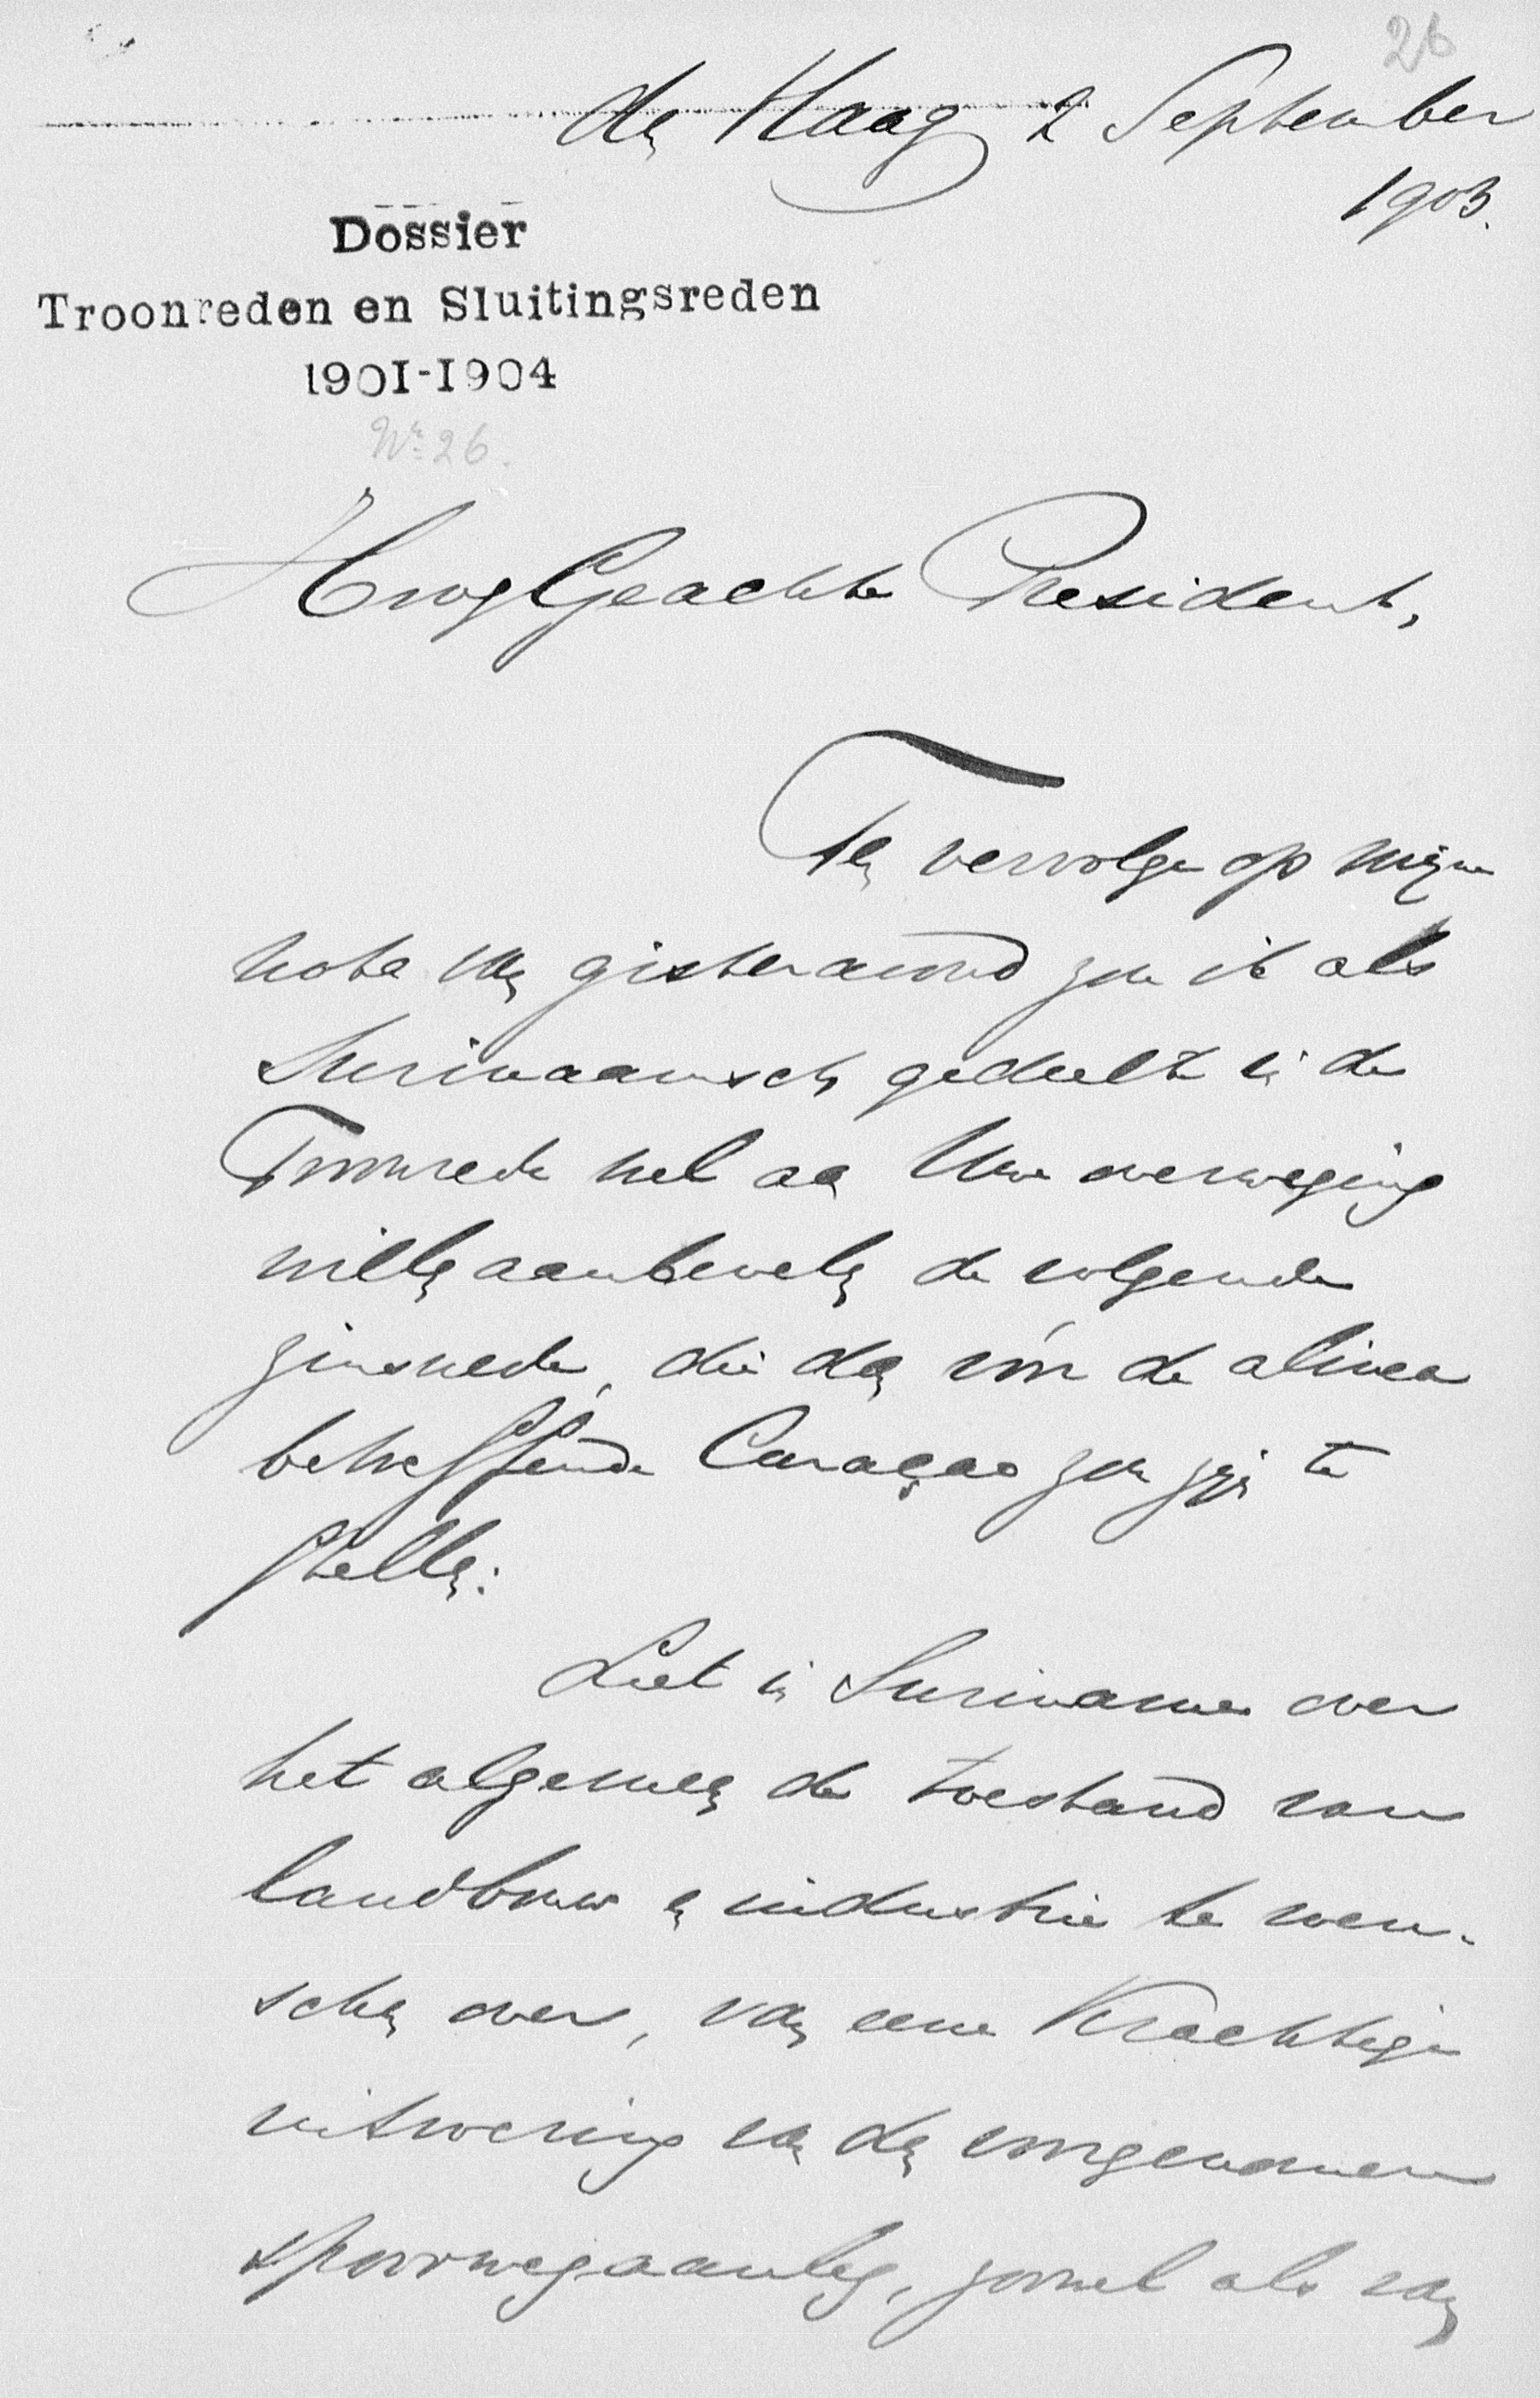 26
den Haag 2 September
1903.
Dossier
Troonreden en Sluitingsreden
1901-1904
No 26.
HoogGeachte President,
Ten vervolge op mijne
nota van gisteravond zou ik als
Surinaamsch gedeelte in de
Troonrede wel aan Uwe overweging
willen aanbevelen de volgende
zinsnede, die dan vóór de alinea
betreffende Curaçao zou zijn te
stellen:
Liet in Suriname over
het algemeen de toestand van
landbouw en industrie te wen-
schen over, van eene Krachtige
uitvoering van den voorgenomen
spoorwegaanleg, zoowel als van